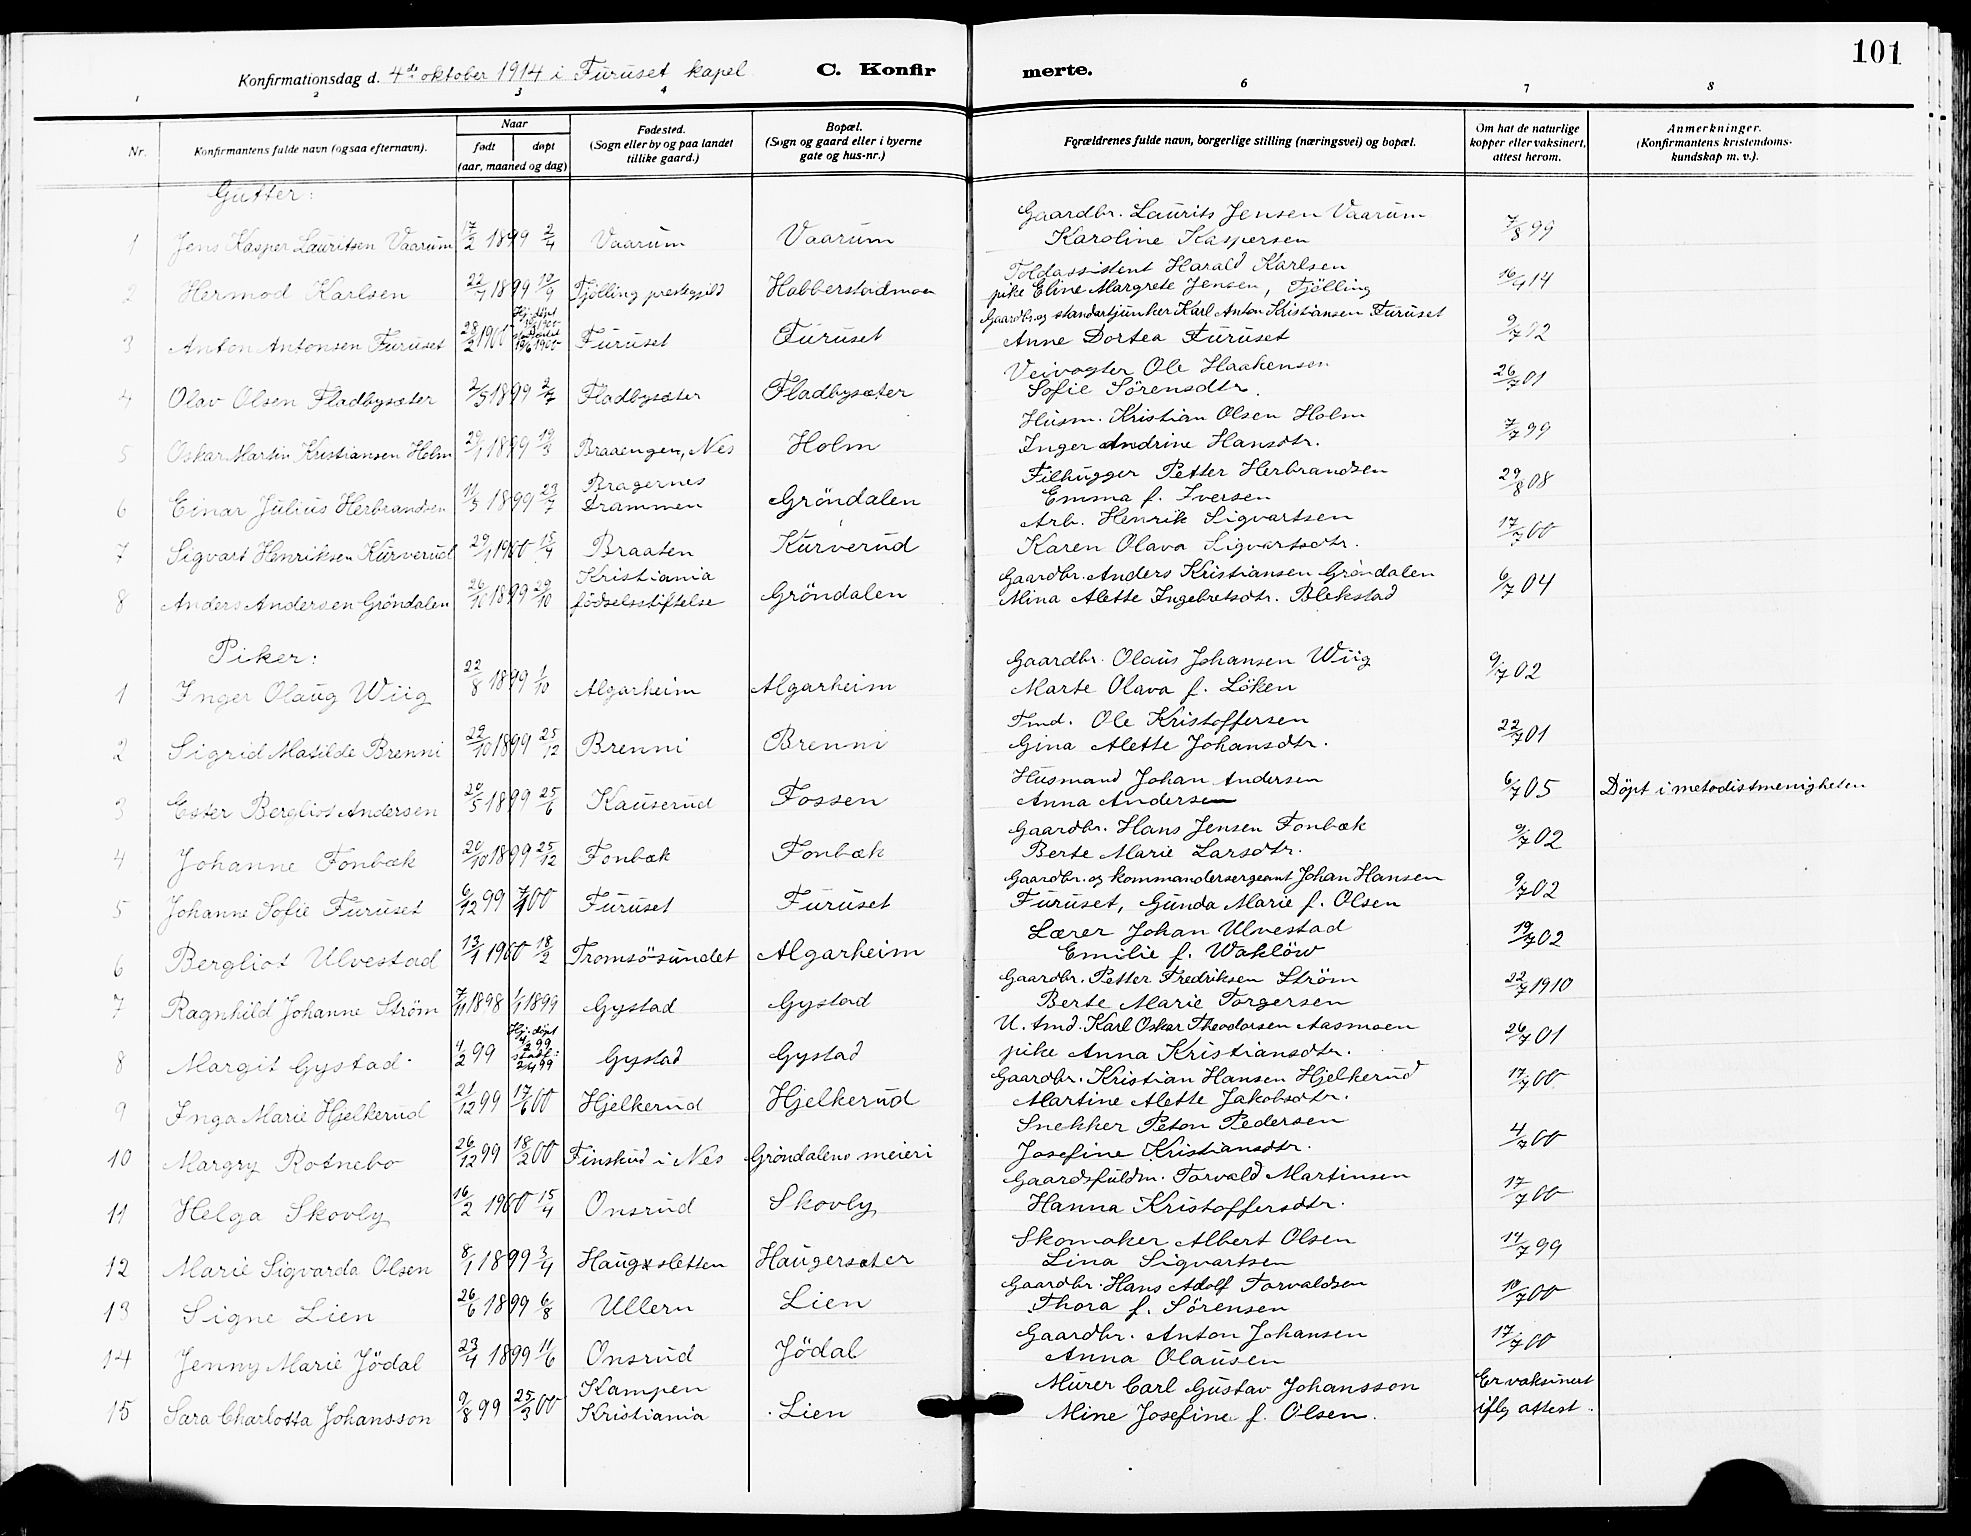 101
Konfirmationsdag d. 4de oktober 1914 i Furuset kapel C. Konfirmerte.
1 2 3 4 6 7 8
Nr. Konfirmantens fulde navn (ogsaa efternavn). Naar født døpt (aar, maaned og dag) Fødested. (Sogn eller by og paa landet tillike gaard.) Bopæl. (Sogn og gaard eller i byerne gate og hus-nr.) Forældrenes fulde navn, borgerlige stilling (næringsvei) og bopæl. Om hat de naturlige kopper eller vaksinert, attest herom. Anmerkninger. (Konfirmantens kristendoms-kundskap m. v.).
Gutter:
1 Jens Kasper Lauritsen Vaarum 17/2 1899 2/4 Vaarum Vaarum Gaardbr. Laurits Jensen Vaarum Karoline Kaspersen 7/8 99
2 Hermod Karlsen 1899 Tjølling prestegjeld Habberstadmoen Toldassistent Harald Karlsen pike Eline Margrete Jensen, Tjølling 16/4 14
3 Anton Antonsen Furuset 28/2 1900 Hj. døpt 19/6 1900 Furuset Furuset Gaardbr. og standartjunker Karl Anton Kristiansen Furuset Anne Dortea Furuset 9/7 02
4 Olav Olsen Fladbysæter 2/5 1899 2/7 Fladbysæter Fladbysæter Veivogter Ole Haakenson Sofie Sörensdtr. 26/7 01
5 Oskar Martin Kristiansen Holm 29/1 1899 19/3 Braaengen, Nes Holm Husm. Kristian Olsen Holm Inger Andrine Hansdtr. 7/7 99
6 Einar Julius Herbrandsen 11/5 1899 23/7 Bragernes Drammen Gröndalen Filhugger Petter Herbrandsen Emma f. Iversen 29/8 08
7 Sigvart Henriksen Kurverud 29/1 1900 15/4 Braaten Kurverud Arb. Henrik Sigvartsen Karen Olava Sigvartsdtr. 17/7 00
8 Anders Andersen Gröndalen 26/10 1899 29/10 Kristiania födselsstiftelse Gröndalen Gaardbr. Anders Kristiansen Gröndalen Mina Alette Ingebretsdtr. Blekstad 6/7 04
Piker:
1 Inger Olaug Wiig 22/8 1899 1/10 Algarheim Algarheim Gaardbr. Olaus Johansen Wiig Marte Olava f. Löken 9/7 02
2 Sigrid Matilde Brenni 29/10 1899 25/12 Brenni Brenni Tmd. Ole Kristoffersen Gina Alette Johansdtr. 22/7 01
3 Ester Bergliot Andersen 20/5 1899 25/6 Kauserud Fossen Husmand Johan Andersen Anna Andersen 6/7 05 Döpt i metodistmenigheten
4 Johanne Fonbæk 20/10 1899 25/12 Fonbæk Fonbæk Gaardbr. Hans Jensen Fonbæk Berte Marie Larsdtr. 9/7 02
5 Johanne Sofie Furuset 6/12 99 00 Furuset Furuset Gaardbr. og kommandersergeant Johan Hansen Furuset, Gunda Marie f. Olsen 9/7 02
6 Bergliot Ulvestad 13/1 1900 18/2 Tromsösundet Algarheim Lærer Johan Ulvestad Emilie f. Waklöw 19/7 02
7 Ragnhild Johanne Ström 7/11 1898 1/1 1899 Gystad Gystad Gaardbr. Petter Fredriksen Ström Berte Marie Torgersen 22/7 1910
8 Margit Gystad 4/2 99 Hj. döpt 99 stadf: 2/4 99 Gystad Gystad U. tmd. Karl Oskar Theodorsen Aasmoen pike Anna Kristiansdtr. 26/7 01
9 Inga Marie Hjelkerud 21/12 99 17/6 00 Hjelkerud Hjelkerud Gaardbr. Kristian Hansen Hjelkerud Martine Alette Jakobsdtr. 17/7 00
10 Margry Rotnebo 26/12 99 18/2 00 Finskud i Nes Gröndalens meieri Snekker Peton Pedersen Josefine Kristiansdtr. 4/7 00
11 Helga Skovly 16/2 1900 15/4 Onsrud Skovly Gaardsfuldm. Torvald Martinsen Hanna Kristoffersdtr. 17/7 00
12 Marie Sigvarda Olsen 8/1 1899 3/4 Haugsletten Haugersæter Skomaker Albert Olsen Lina Sigvartsen 14/7 99
13 Signe Lien 26/6 1899 6/8 Ullern Lien Gaardbr. Hans Adolf Torvaldsen Thora f. Sörensen 18/7 00
14 Jenny Marie Jödal 23/4 1899 11/6 Onsrud Jödal Gaardbr. Anton Johansen Anna Olausen 17/7 00
15 Sara Charlotta Johansson 9/8 99 25/3 00 Kampen Kristiania Lien Murer Carl Gustav Johansson Mine Josefine f. Olsen. Er vaksinert iflg attest.